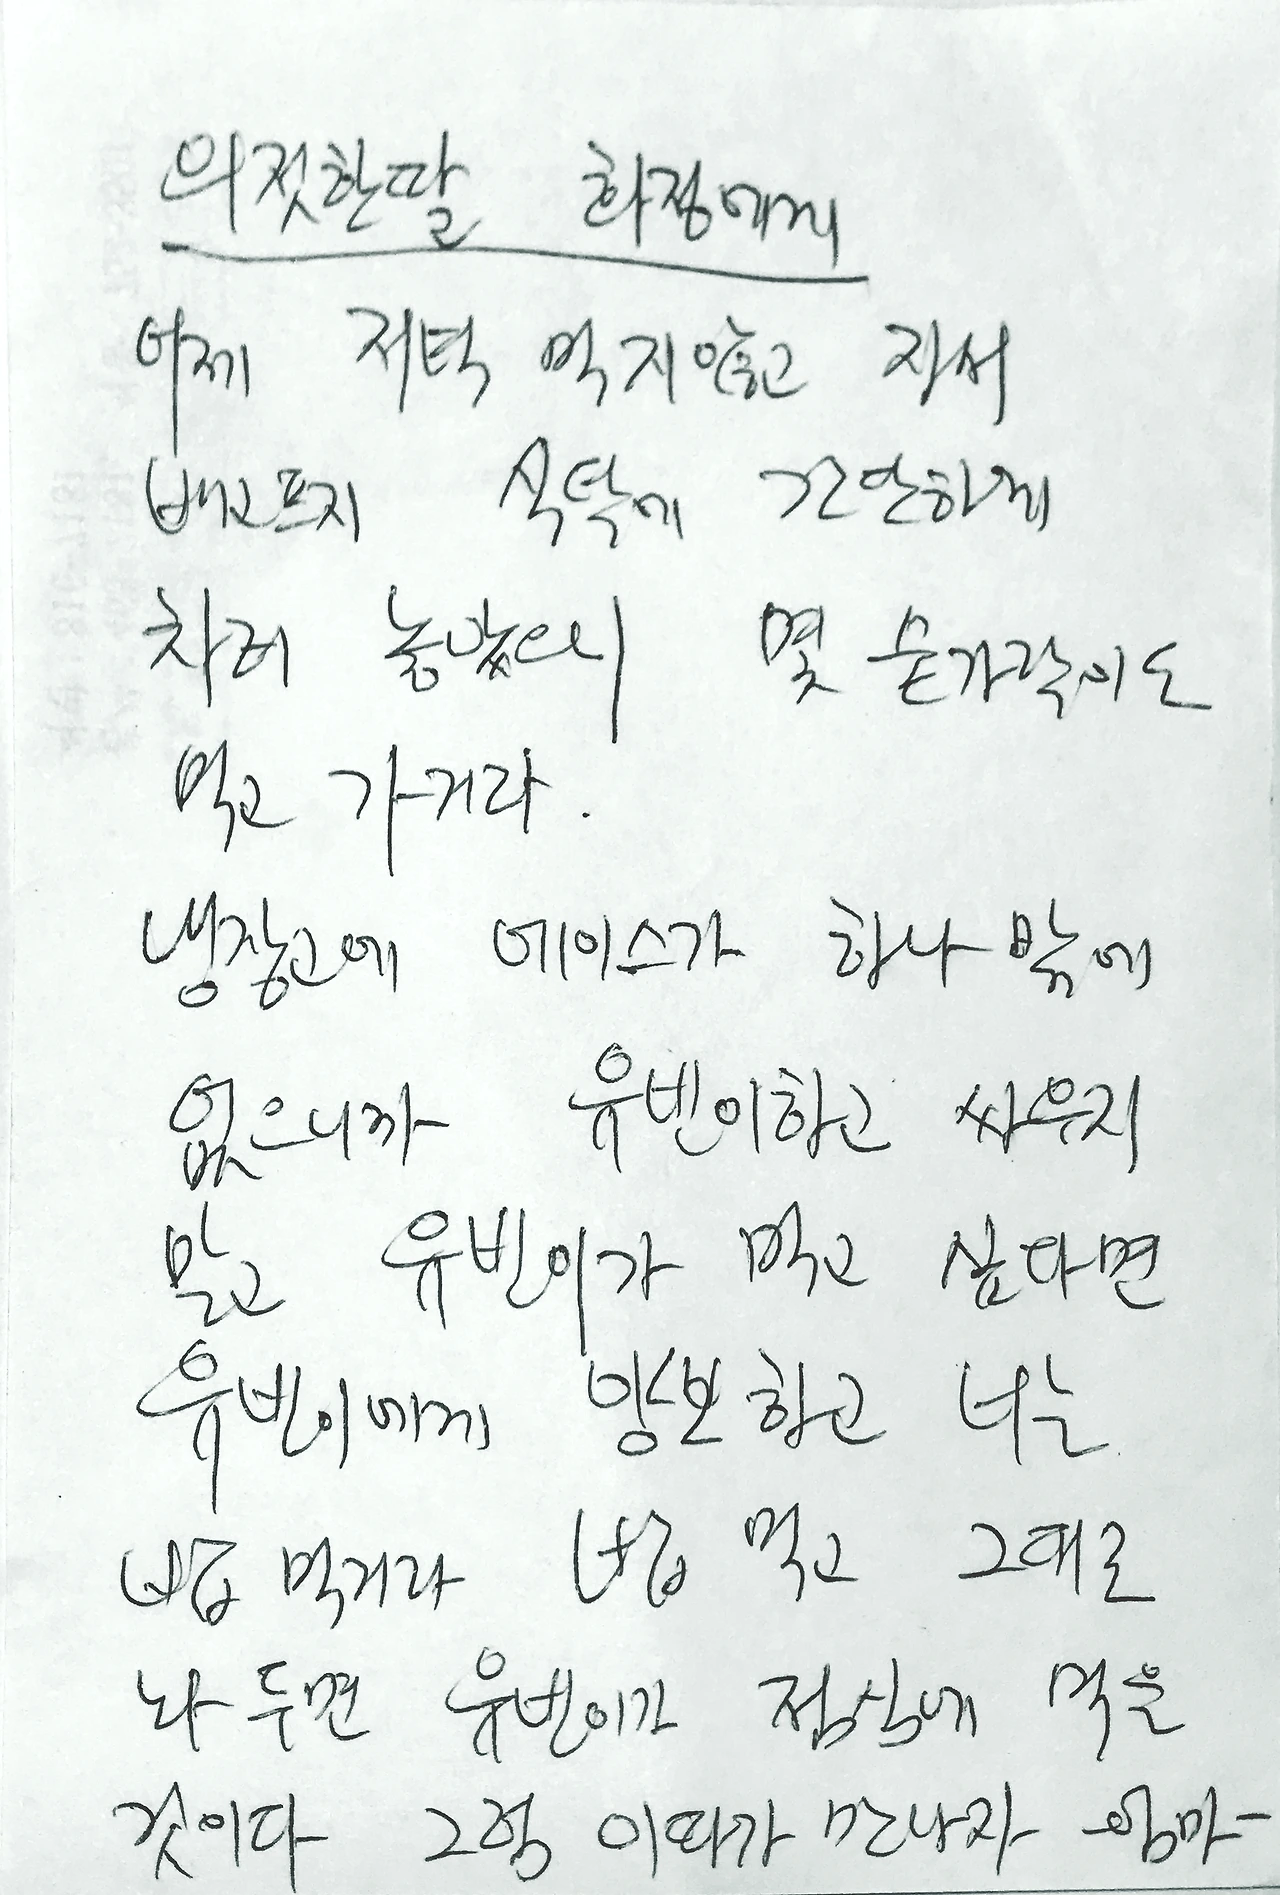 의젓한딸 화정에게
어제 저녁 먹지않고 자서
배고프지 식탁에 간단하게
차려 놓았으니 몇 숟가락이도
먹고 가거라.
냉장고에 에이스가 하나 밖에
없으니까 유빈이하고 싸우지
말고 유빈이가 먹고 싶다면
유빈이에게 양보하고 너는
밥 먹거라 밥 먹고 그대로
놔두면 유빈이가 점심에 먹을
것이다 그럼 이따가 만나자 엄마-